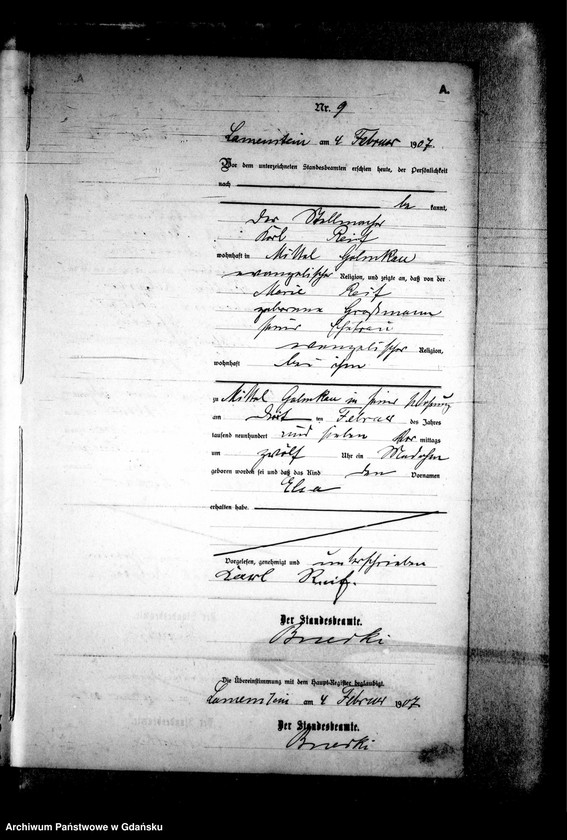 A.
Nr. 9
Lamenstein am 4 Februar 1907.
Vor dem unterzeichneten Standesbeamten erschien heute, der Persönlichkeit
nach
be kannt,
der Stellmacher
Karl Reif
wohnhaft in Mittel Golmkau
evangelischer Religion, und zeigte an, daß von der
Marie Reif
geborene Großmann
seiner Ehefrau
evangelischer Religion,
wohnhaft bei ihm
zu Mittel Golmkau in seiner Wohnung
am ten Februar des Jahres
tausend neunhundert und sieben Vor mittags
um zwölf Uhr ein Mädchen
geboren worden sei und daß das Kind den Vornamen
Elsa
erhalten habe.
Vorgelesen, genehmigt und unterschrieben
Karl Reif.
Der Standesbeamte.
Die Übereinstimmung mit dem Haupt-Register beglaubigt.
Lamenstein am 4 Februar 1907
Der Standesbeamte.
Archiwum Państwowe w Gdańsku